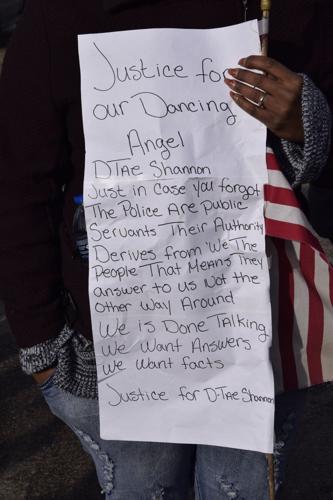 Justice for
our Dancing
Angel
DTae Shannon
Just in case you forgot
The Police Are public
Servants Their Authority
Derives from "We The
People That Means They
answer to us Not the
other Way Around
We is Done Talking
We Want Answers
We want facts
Justice for D-Tae Shannon